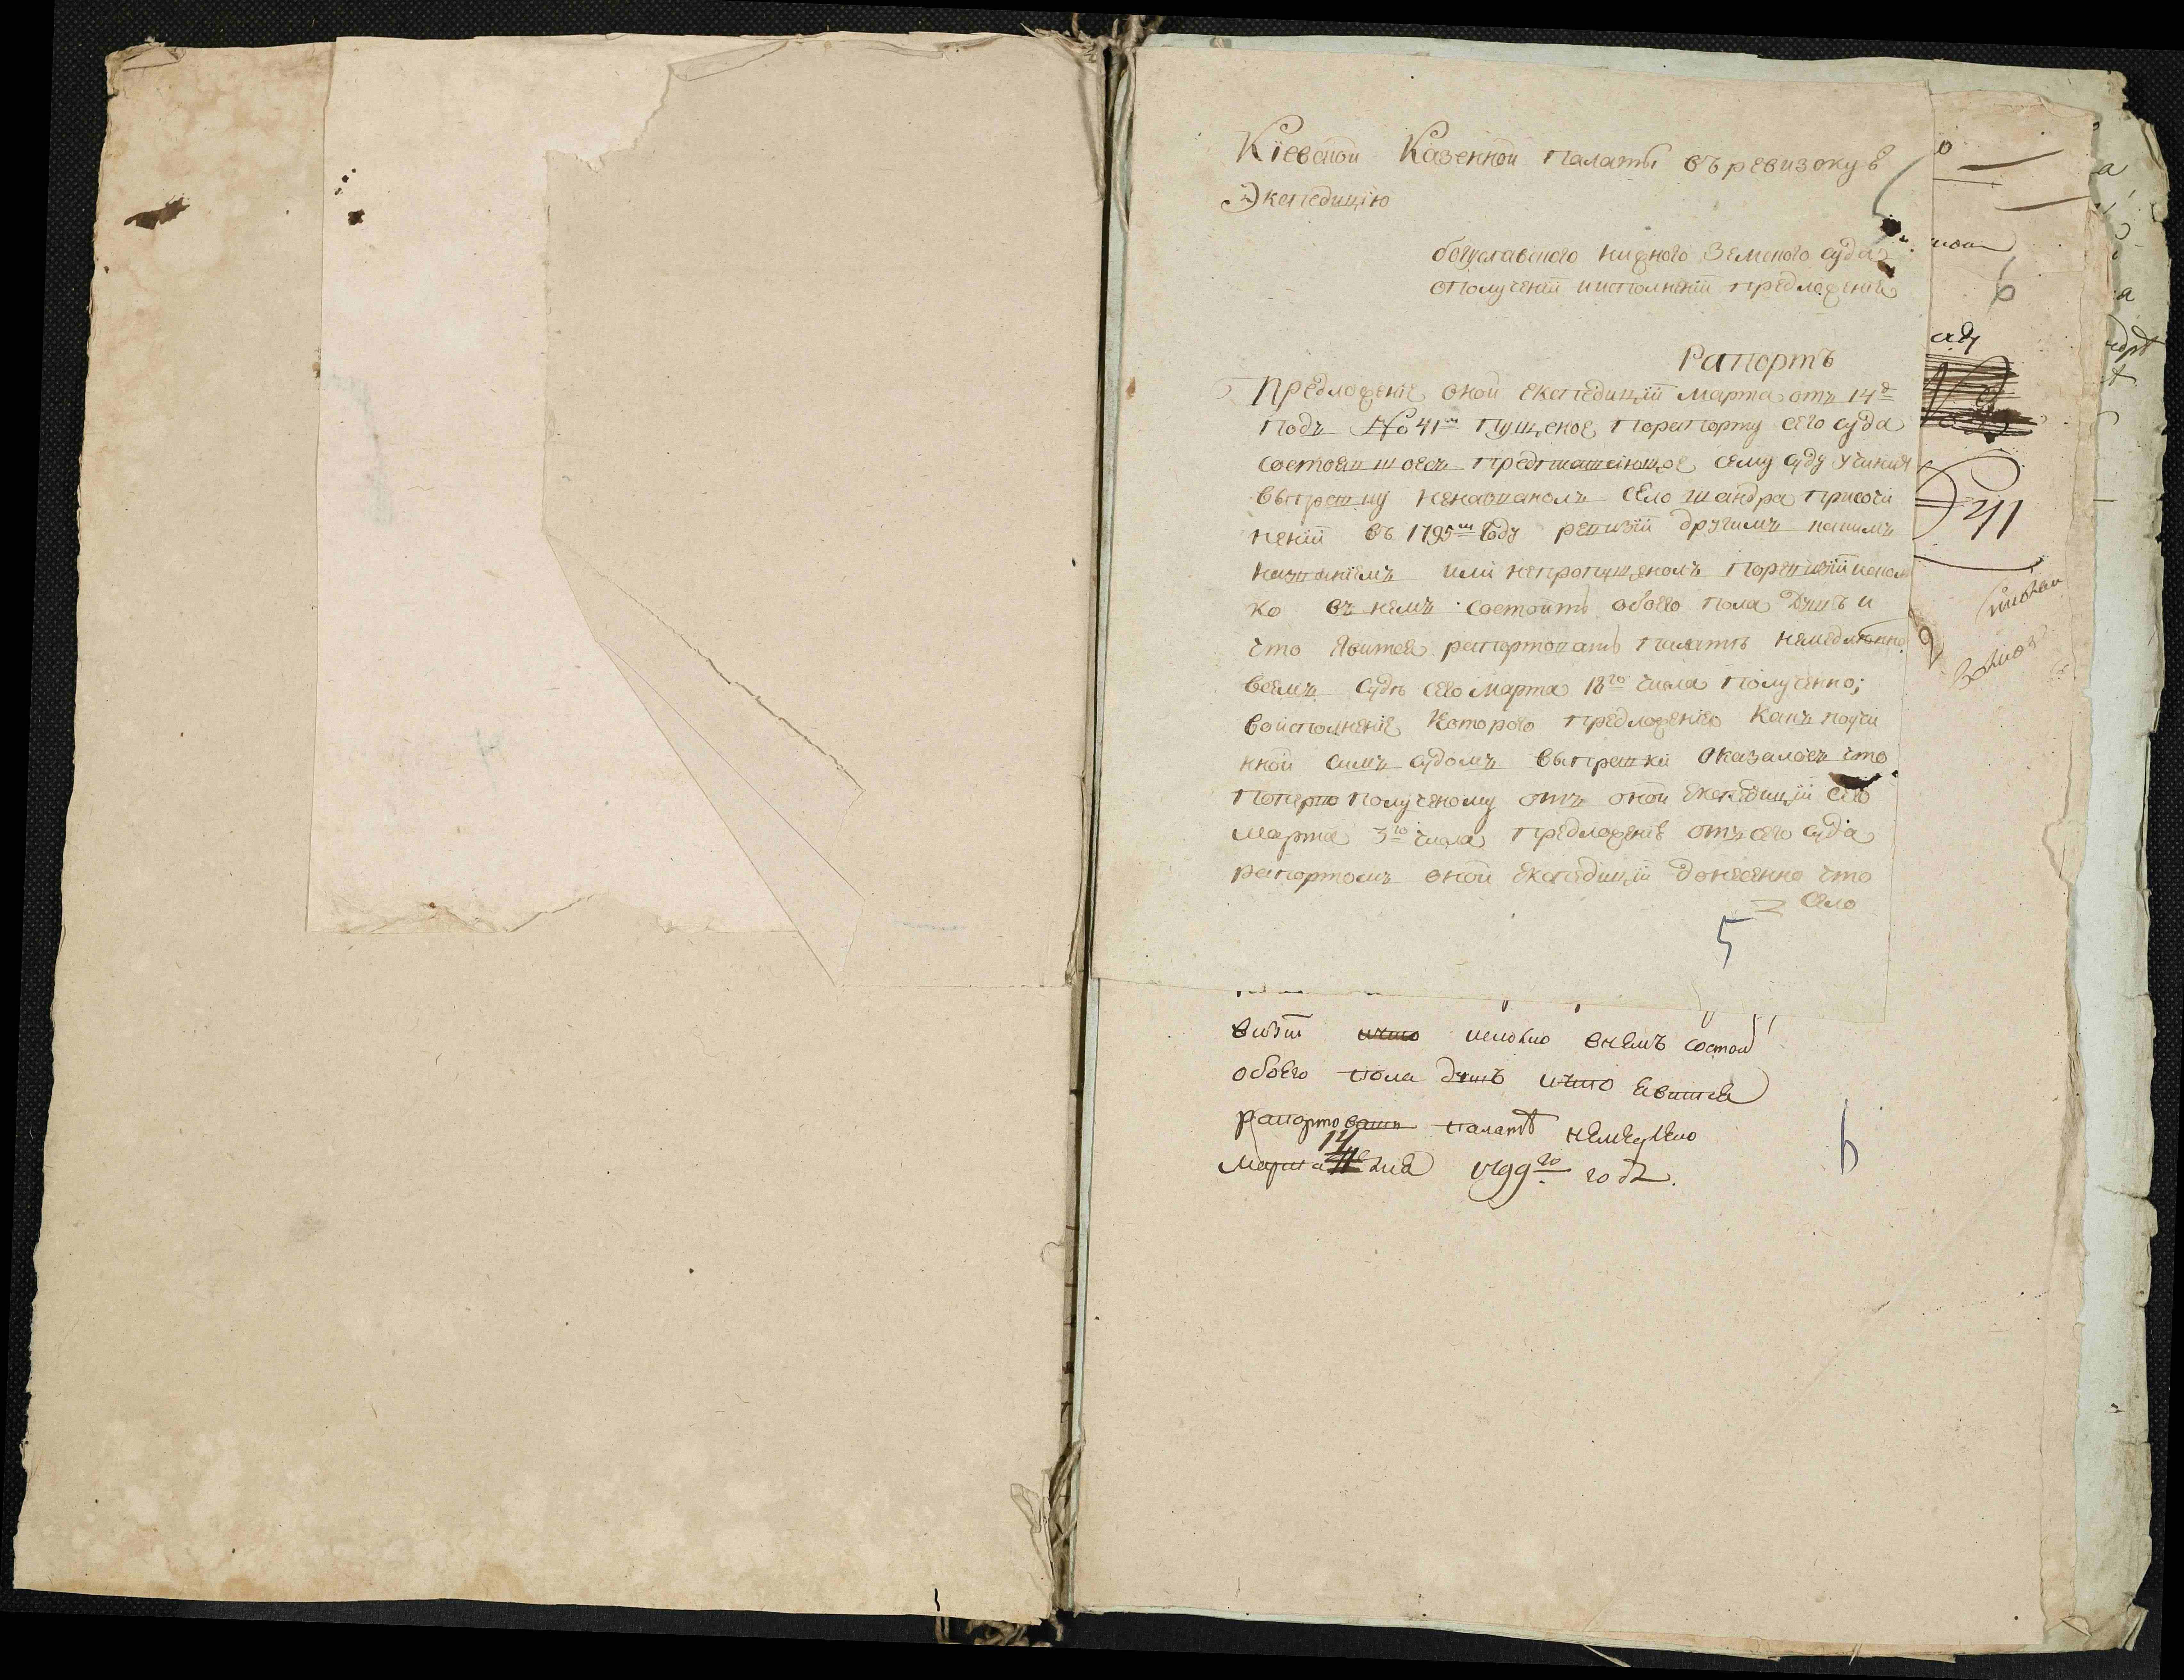 Кіевской Казенной палаты въ ревизскую
Экспедицію
богуславского нижнего Земского суда
о получении и исполнении предложения
Рапортъ
Предложение оной експедиціи марта отъ 14е
подъ No 41м пущеное по рапорту сего суда
состоявшоесъ предписующое сему суду учиня
выправку неназванолъ село шандра присочи
нении въ 1795м году ревизіи другимъ какимъ
названиемъ или непропущенолъ по ревизіи и сколь
ко въ немъ состоитъ обоего пола душъ и
что явитея рапортовать палатѣ немедленно
всемъ судѣ сего марта 18го числа полученно;
во исполнение которого предложения какъ поучи
нной симъ судомъ выправки оказалосъ что
попервополученому отъ оной експедиціи сего
марта 3го числа предложенію отъ сего суда
рапортомъ оной експедиціи донесенно что
село
5
визіи исколко внемъ состои
обоего пола душъ и что явитея
рапортовать палатѣ немедлено
14
марта дня 1799го года.
6
6
41